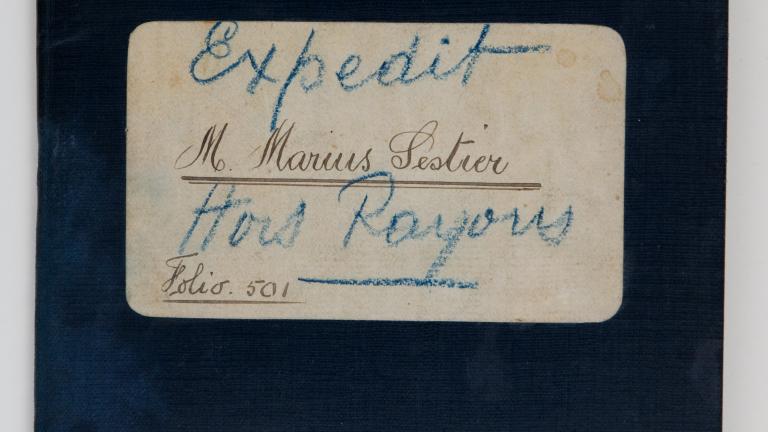 Expedit
M. Marius Sestier
Hors Rayons
Folio. 501